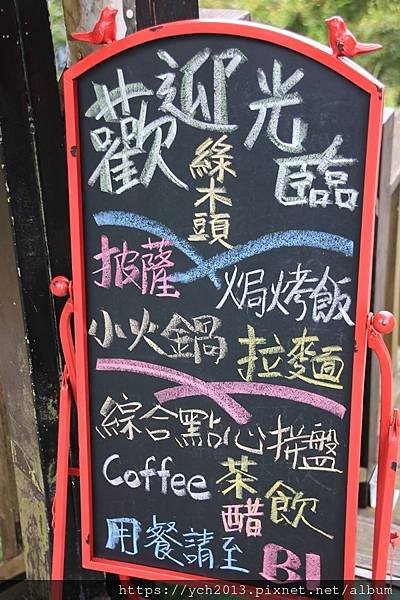 歡迎光臨
綠木頭
披薩
焗烤飯
小火鍋
拉麵
綜合點心拼盤
Coffee
茶飲
醋
用餐請至 B1
https://ych2013.pixnet.net/album